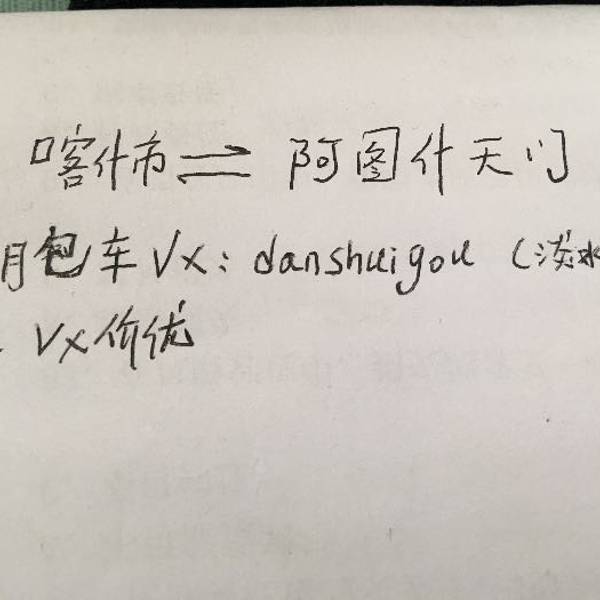 喀什市⇌阿图什天门
月包车Vx：danshuigou（淡水
Vx价优